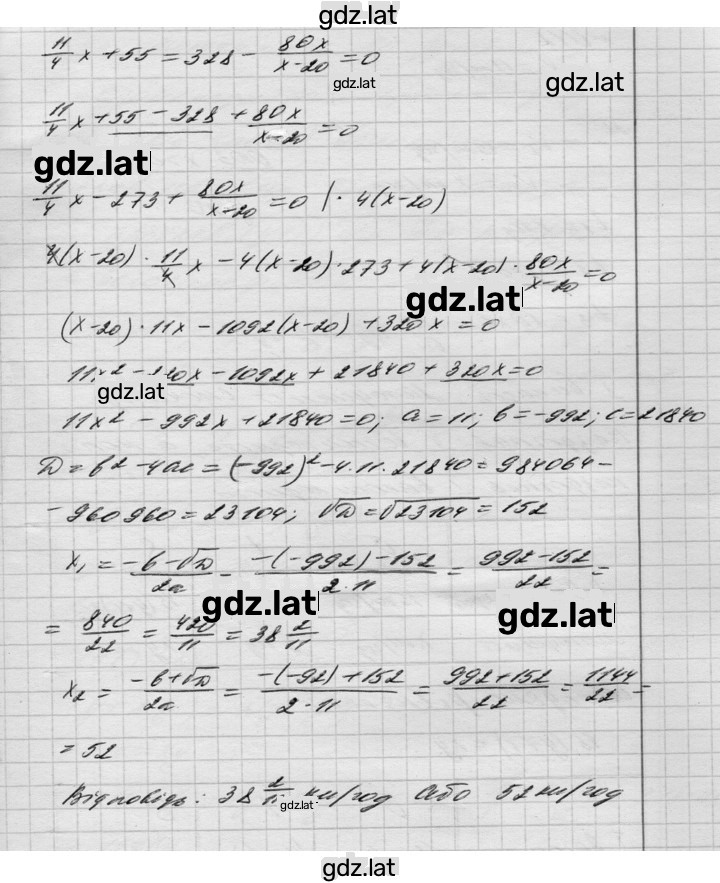 gdz.lat
11/4 x + 55 = 328 - 80x/(x-20) = 0
gdz.lat
gdz.lat
11/4 x + 55 - 328 + 80x/(x-20) = 0
gdz.lat
11/4 x - 273 + 80x/(x-20) = 0 | · 4(x-20)
4(x-20) · 11/4 x - 4(x-20) · 273 + 4(x-20) · 80x/(x-20) = 0
gdz.lat
(x-20) · 11x - 1092(x-20) + 320x = 0
11x² - 220x - 1092x + 21840 + 320x = 0
gdz.lat
11x² - 992x + 21840 = 0; a = 11; b = -992; c = 21840
D = b² - 4ac = (-992)² - 4·11·21840 = 984064 -
- 960960 = 23104; √D = √23104 = 152
x₁ = (-b-√D)/2a = (-(-992)-152)/(2·11) = (992-152)/22 =
gdz.lat
gdz.lat
= 840/22 = 420/11 = 38 2/11
x₂ = (-b+√D)/2a = (-(-92)+152)/(2·11) = (992+152)/22 = 1144/22 =
= 52
Відповідь: 38 2/11 км/год або 52 км/год
gdz.lat
gdz.lat